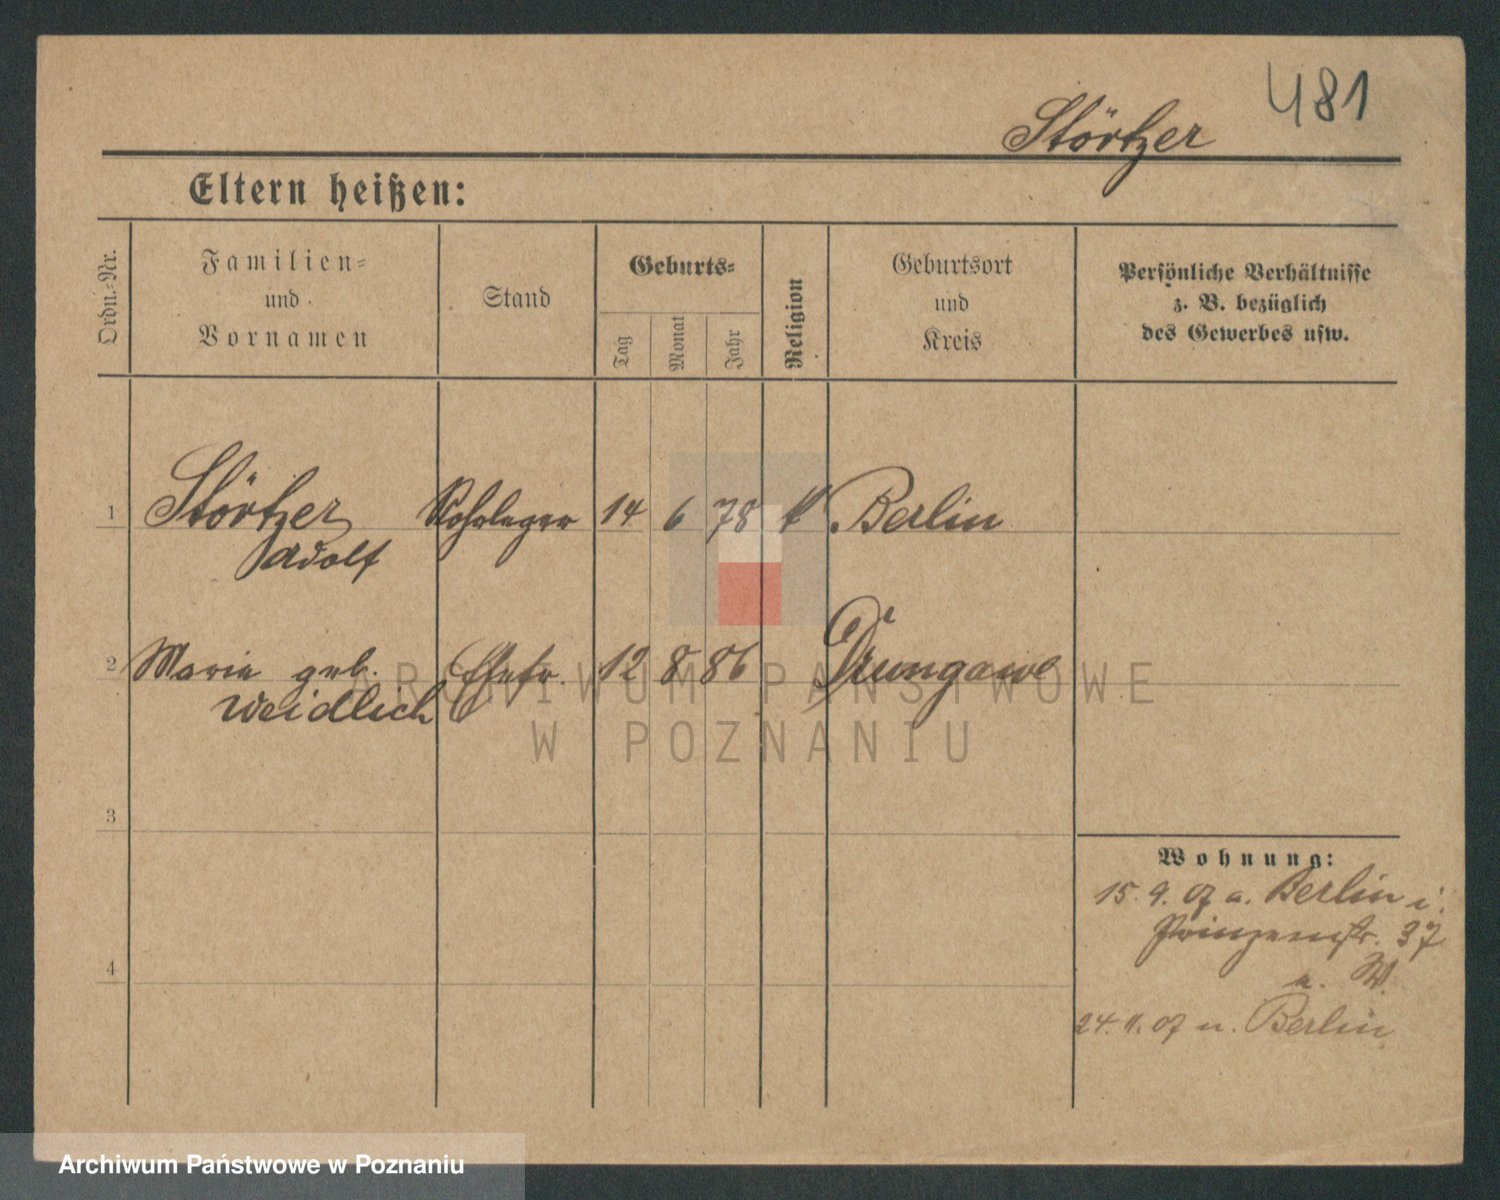 481
Störtzer
Eltern heißen:
Ordn.-Nr.
Familien-
und
Vornamen
Stand
Geburts-
Tag
Monat
Jahr
Religion
Geburtsort
und
Kreis
Persönliche Verhältnisse
z. B. bezüglich
des Gewerbes usw.
1 Störtzer Rohrleger 14 6 78 k Berlin
Adolf
2 Marie geb. Ehefr. 12 8 86
Weidlich
3
4
Wohnung:
15. 9. 07 a. Berlin i.
Prinzenstr. 37
24. 11. 07 n. Berlin
ARCHIWUM PAŃSTWOWE
W POZNANIU
Archiwum Państwowe w Poznaniu